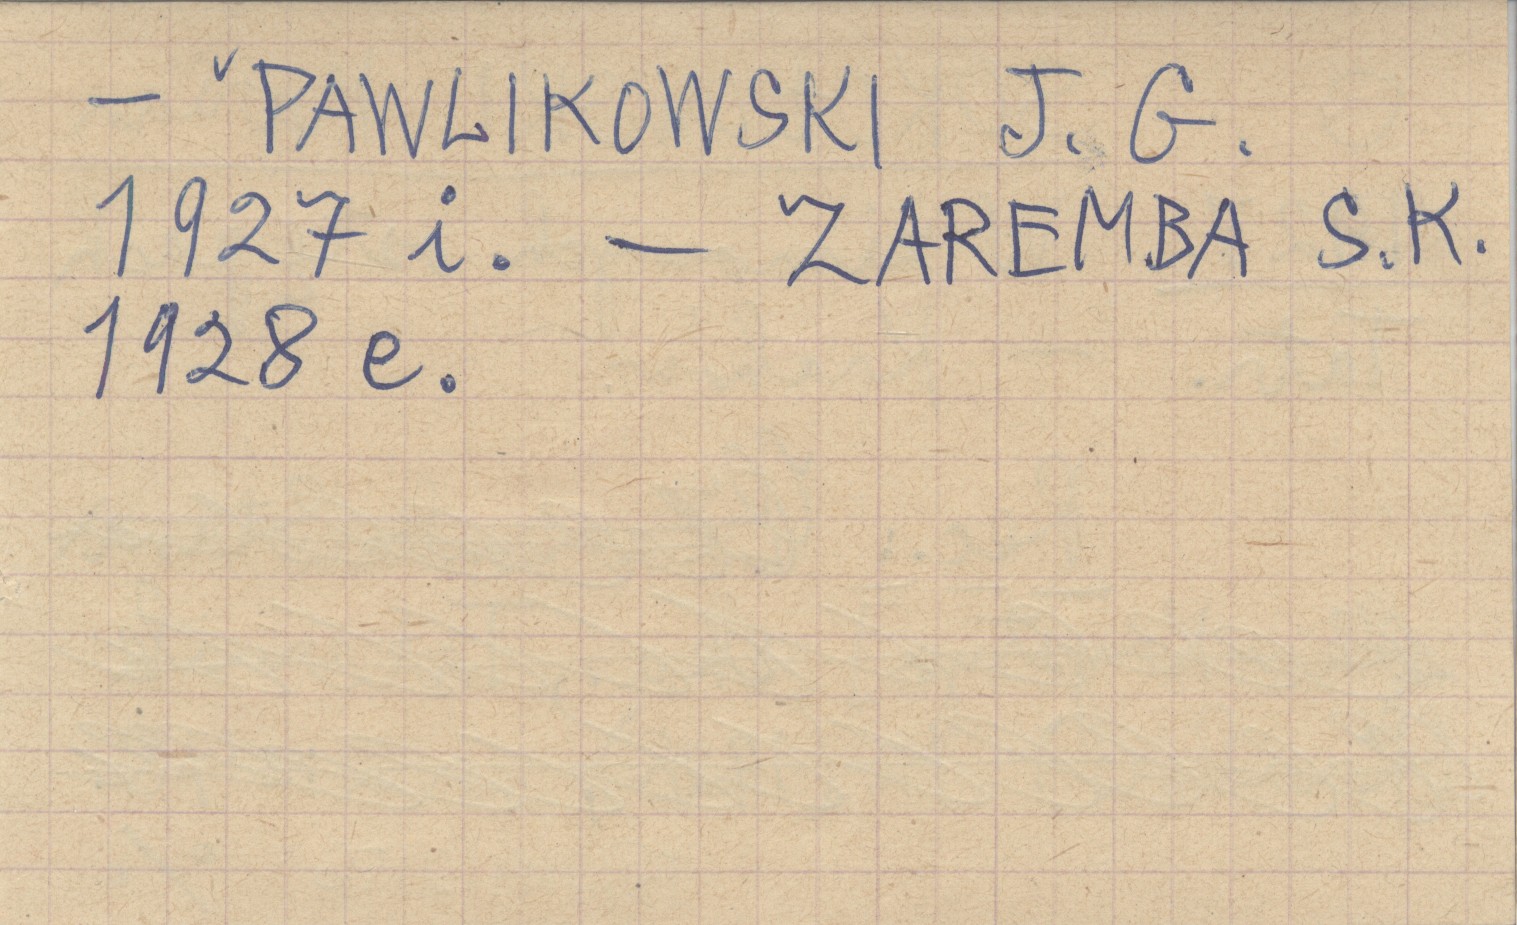 – ˅PAWLIKOWSKI J. G.
1927 i. – ZAREMBA S.K.
1928 e.